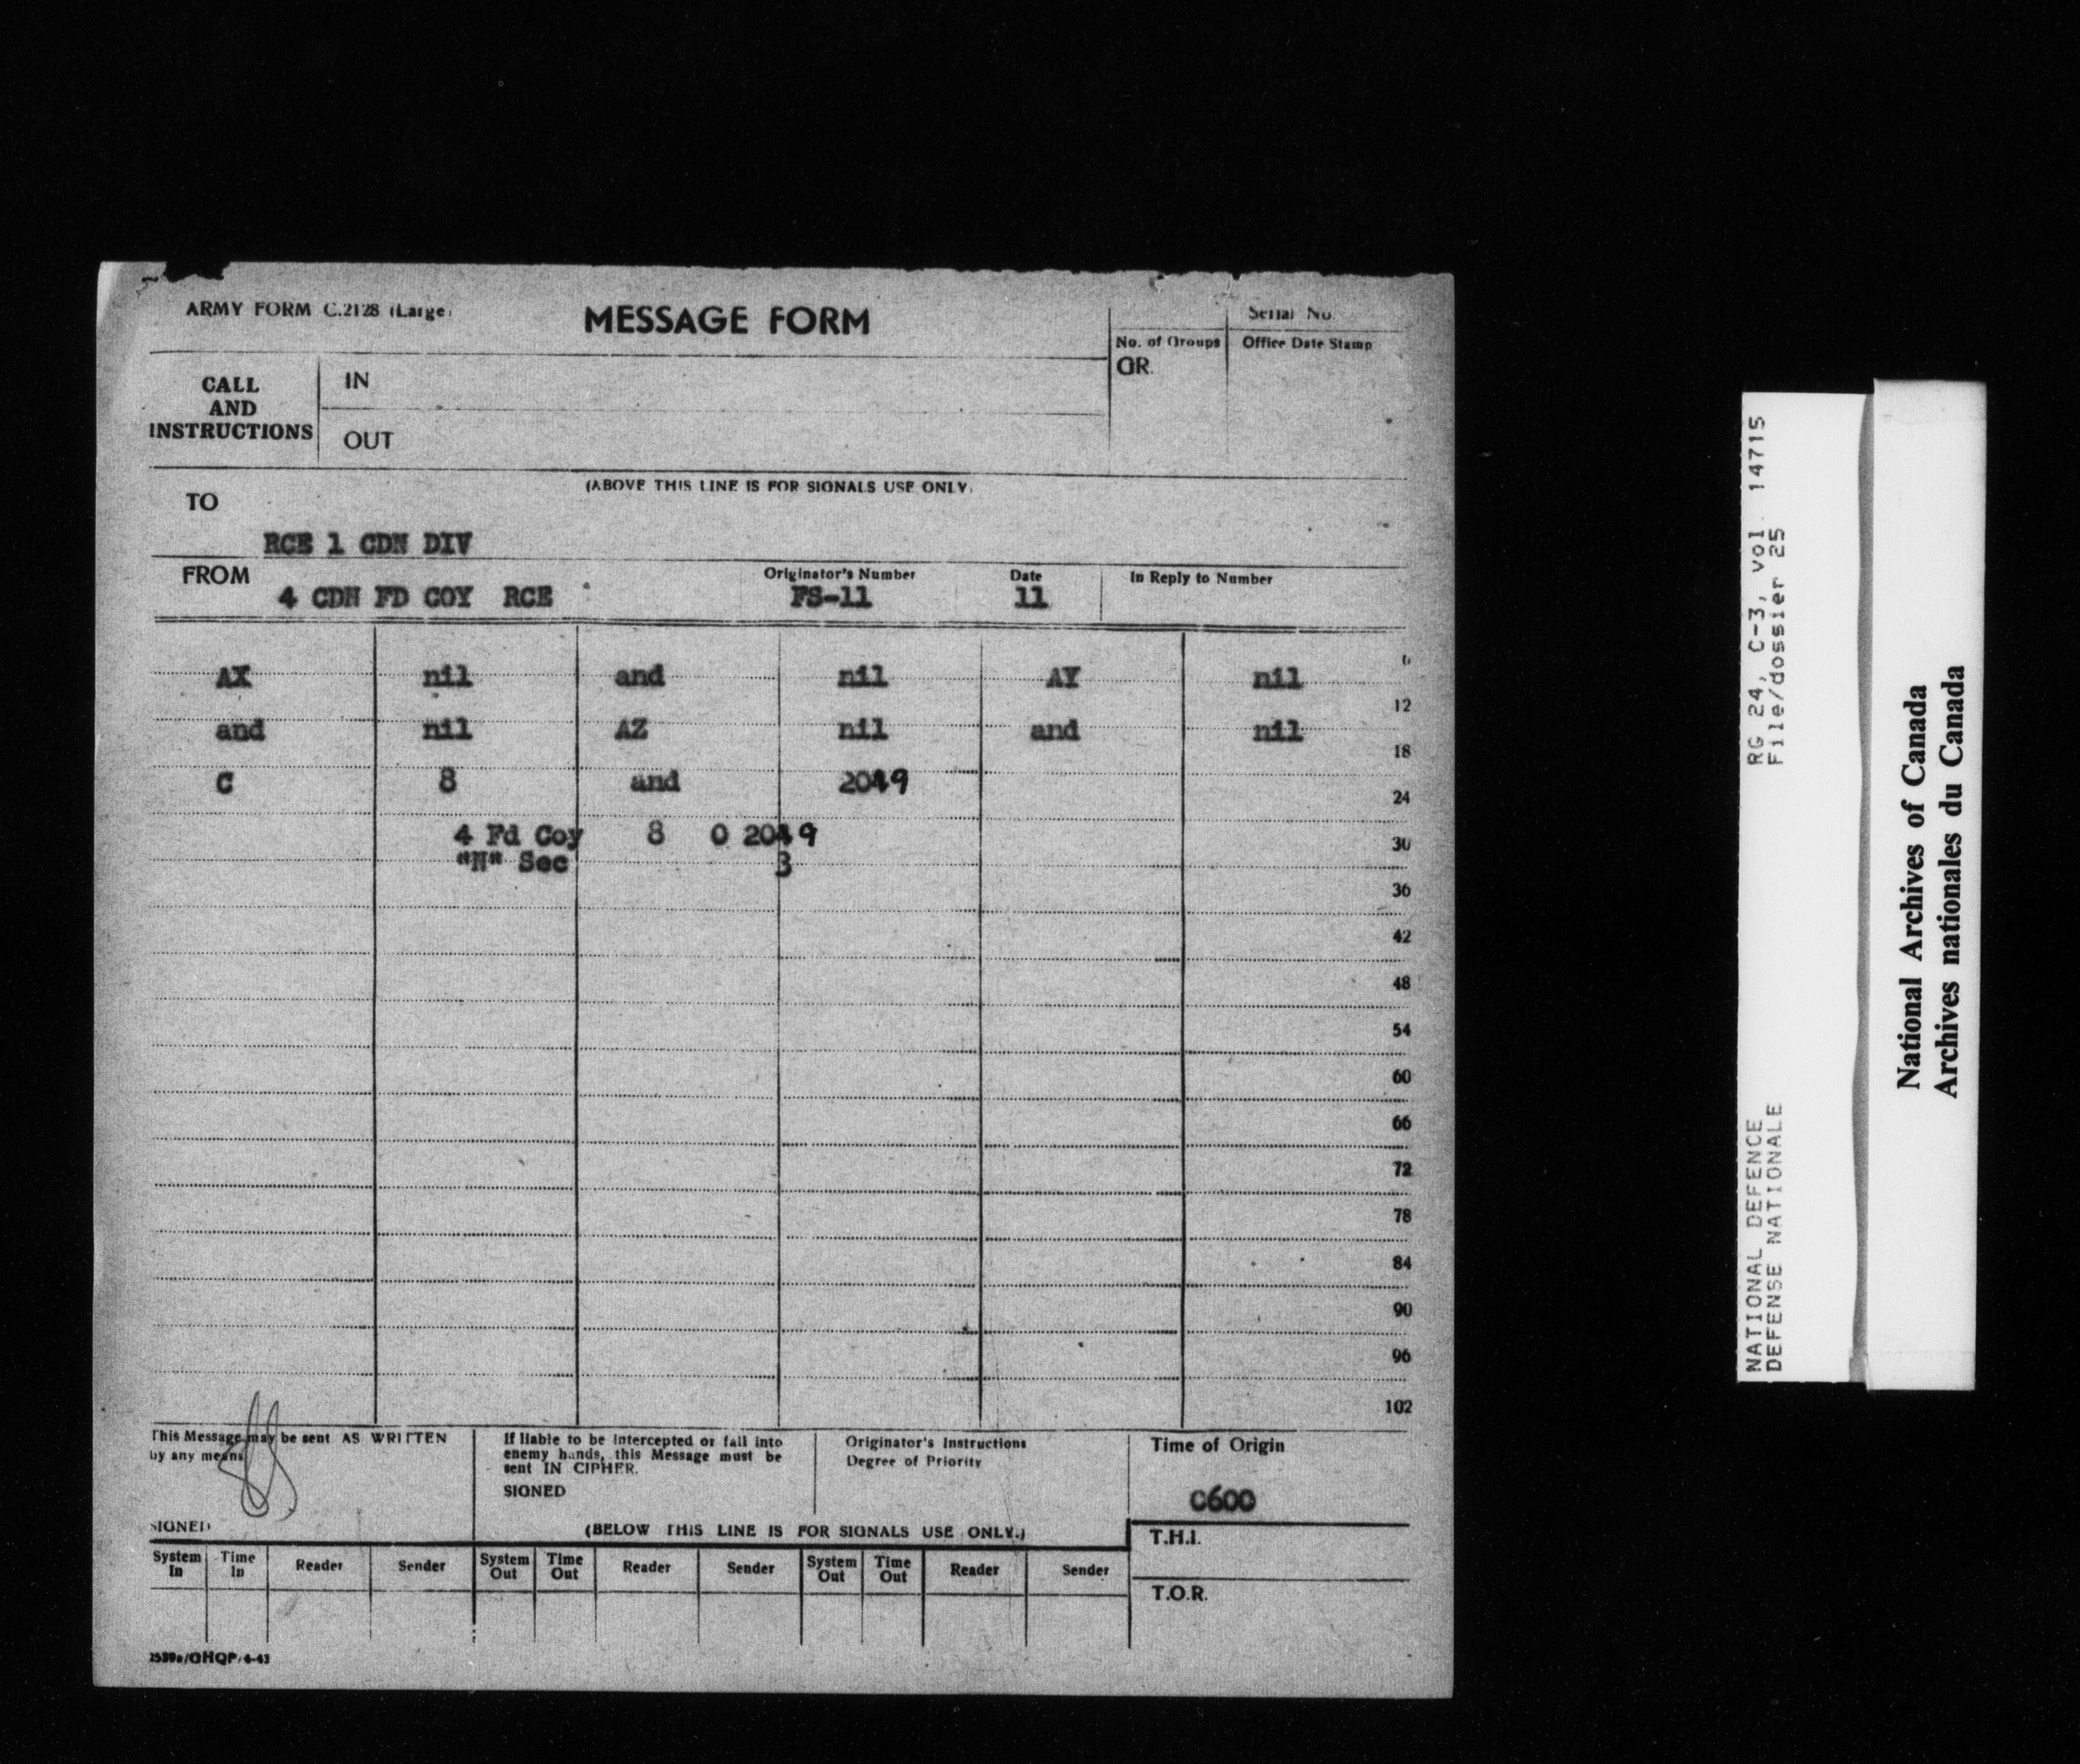 ARMY FORM C.2128 (Large)
MESSAGE FORM
Serial No.
No. of Groups
Office Date Stamp
GR.
CALL
AND
INSTRUCTIONS
IN
OUT
(ABOVE THIS LINE IS FOR SIGNALS USE ONLY)
TO
RCE 1 CDN DIV
FROM
4 CDN FD COY RCE
Originator's Number
FS-11
Date
11
In Reply to Number
AX nil and nil AY nil
6
12
and nil AZ nil and nil
18
C 8 and 2049
24
4 Fd Coy 8 O 2049
30
"H" Sec 3
36
42
48
54
60
66
72
78
84
90
96
102
This Message may be sent AS WRITTEN
by any means
SIGNED
If liable to be intercepted or fall into
enemy hands, this Message must be
sent IN CIPHER.
SIGNED
Originator's Instructions
Degree of Priority
Time of Origin
0600
(BELOW THIS LINE IS FOR SIGNALS USE ONLY.)
T.H.I.
T.O.R.
System In Time In Reader Sender System Out Time Out Reader Sender System Out Time Out Reader Sender
NATIONAL DEFENCE RG 24, C-3, vol. 14715
DEFENSE NATIONALE File/dossier 25
National Archives of Canada
Archives nationales du Canada